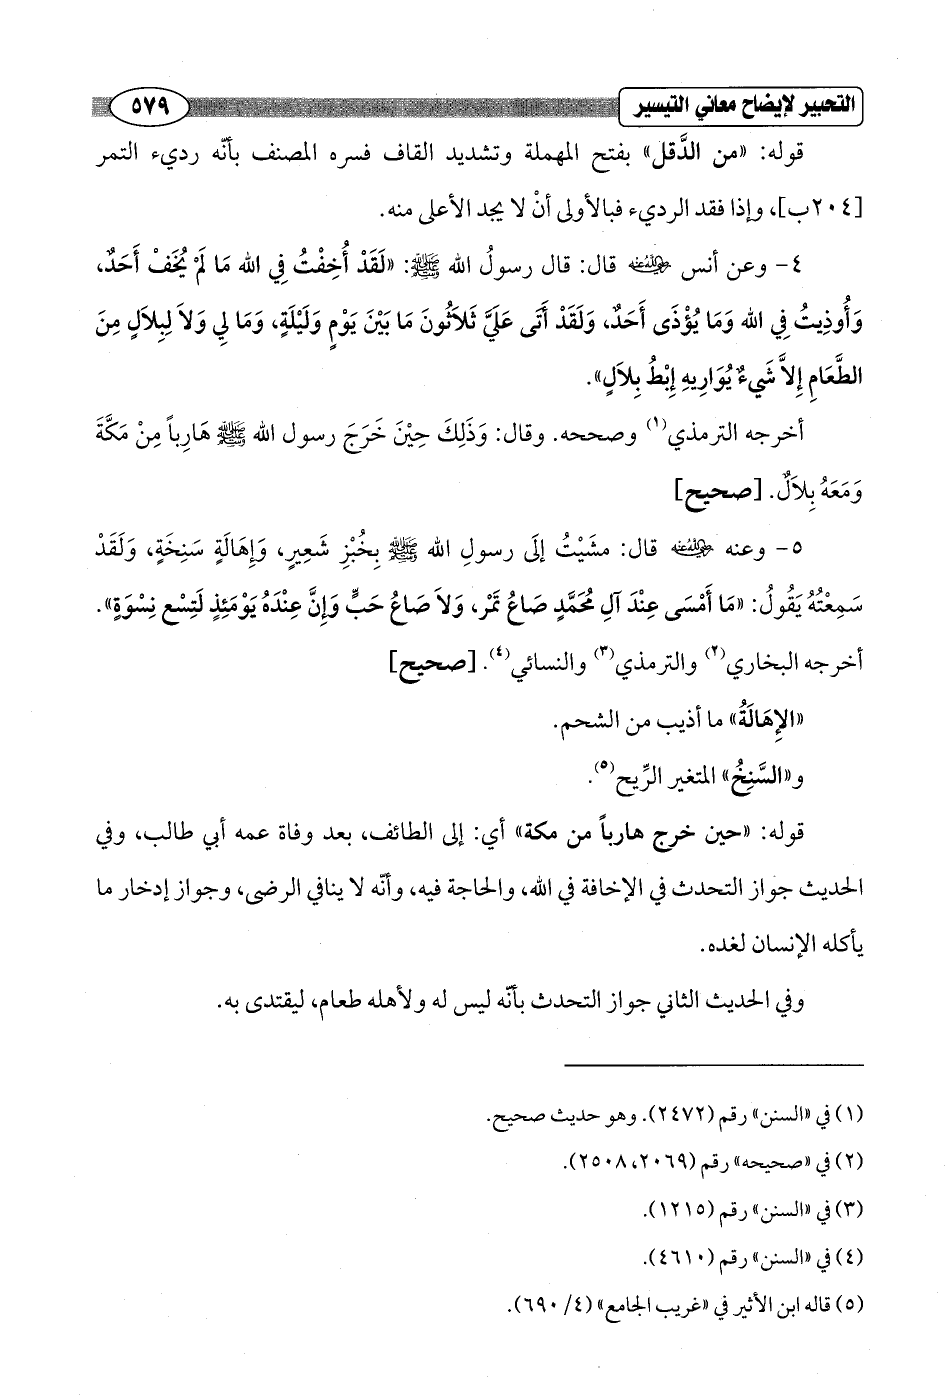 التحبير لإيضاح معاني التيسير
٥٧٩
قوله: «من الدَّقل» بفتح المهملة وتشديد القاف فسره المصنف بأنّه رديء التمر
[٢٠٤ب]، وإذا فقد الرديء فبالأولى أنْ لا يجد الأعلى منه.
٤- وعن أنس رضي الله عنه قال: قال رسولُ الله ﷺ: «لَقَدْ أُخِفْتُ فِي الله مَا لَمْ يُخَفْ أَحَدٌ،
وَأُوذِيتُ فِي الله وَمَا يُؤْذَى أَحَدٌ، وَلَقَدْ أَتَى عَلَيَّ ثَلاَثُونَ مَا بَيْنَ يَوْمٍ وَلَيْلَةٍ، وَمَا لِي وَلاَ لِبِلاَلٍ مِنَ
الطَّعَامِ إِلاَّ شَيءٌ يُوَارِيهِ إِبْطُ بِلاَلٍ».
أخرجه الترمذي(١) وصححه. وقال: وَذَلِكَ حِيْنَ خَرَجَ رسول الله ﷺ هَارِباً مِنْ مَكَّةَ
وَمَعَهُ بِلاَلٌ. [صحيح]
٥- وعنه رضي الله عنه قال: مشَيْتُ إِلَى رسولِ الله ﷺ بِخُبْزِ شَعِيرٍ، وَإِهَالَةٍ سَنِخَةٍ، وَلَقَدْ
سَمِعْتُهُ يَقُولُ: «مَا أَمْسَى عِنْدَ آلِ مُحَمَّدٍ صَاعُ تَمْر، وَلاَ صَاعُ حَبٍّ وَإِنَّ عِنْدَهُ يَوْمَئِذٍ لَتِسْع نِسْوَةٍ».
أخرجه البخاري(٢) والترمذي(٣) والنسائي(٤). [صحيح]
«الإِهَالَةُ» ما أذيب من الشحم.
و«السَّنِخُ» المتغير الرِّيح(٥).
قوله: «حين خرج هارباً من مكة» أي: إلى الطائف، بعد وفاة عمه أبي طالب، وفي
الحديث جواز التحدث في الإخافة في الله، والحاجة فيه، وأنّه لا ينافي الرضى، وجواز إدخار ما
يأكله الإنسان لغده.
وفي الحديث الثاني جواز التحدث بأنّه ليس له ولأهله طعام، ليقتدى به.
(١) في «السنن» رقم (٢٤٧٢). وهو حديث صحيح.
(٢) في «صحيحه» رقم (٢٠٦٩، ٢٥٠٨).
(٣) في «السنن» رقم (١٢١٥).
(٤) في «السنن» رقم (٤٦١٠).
(٥) قاله ابن الأثير في «غريب الجامع» (٤/ ٦٩٠).